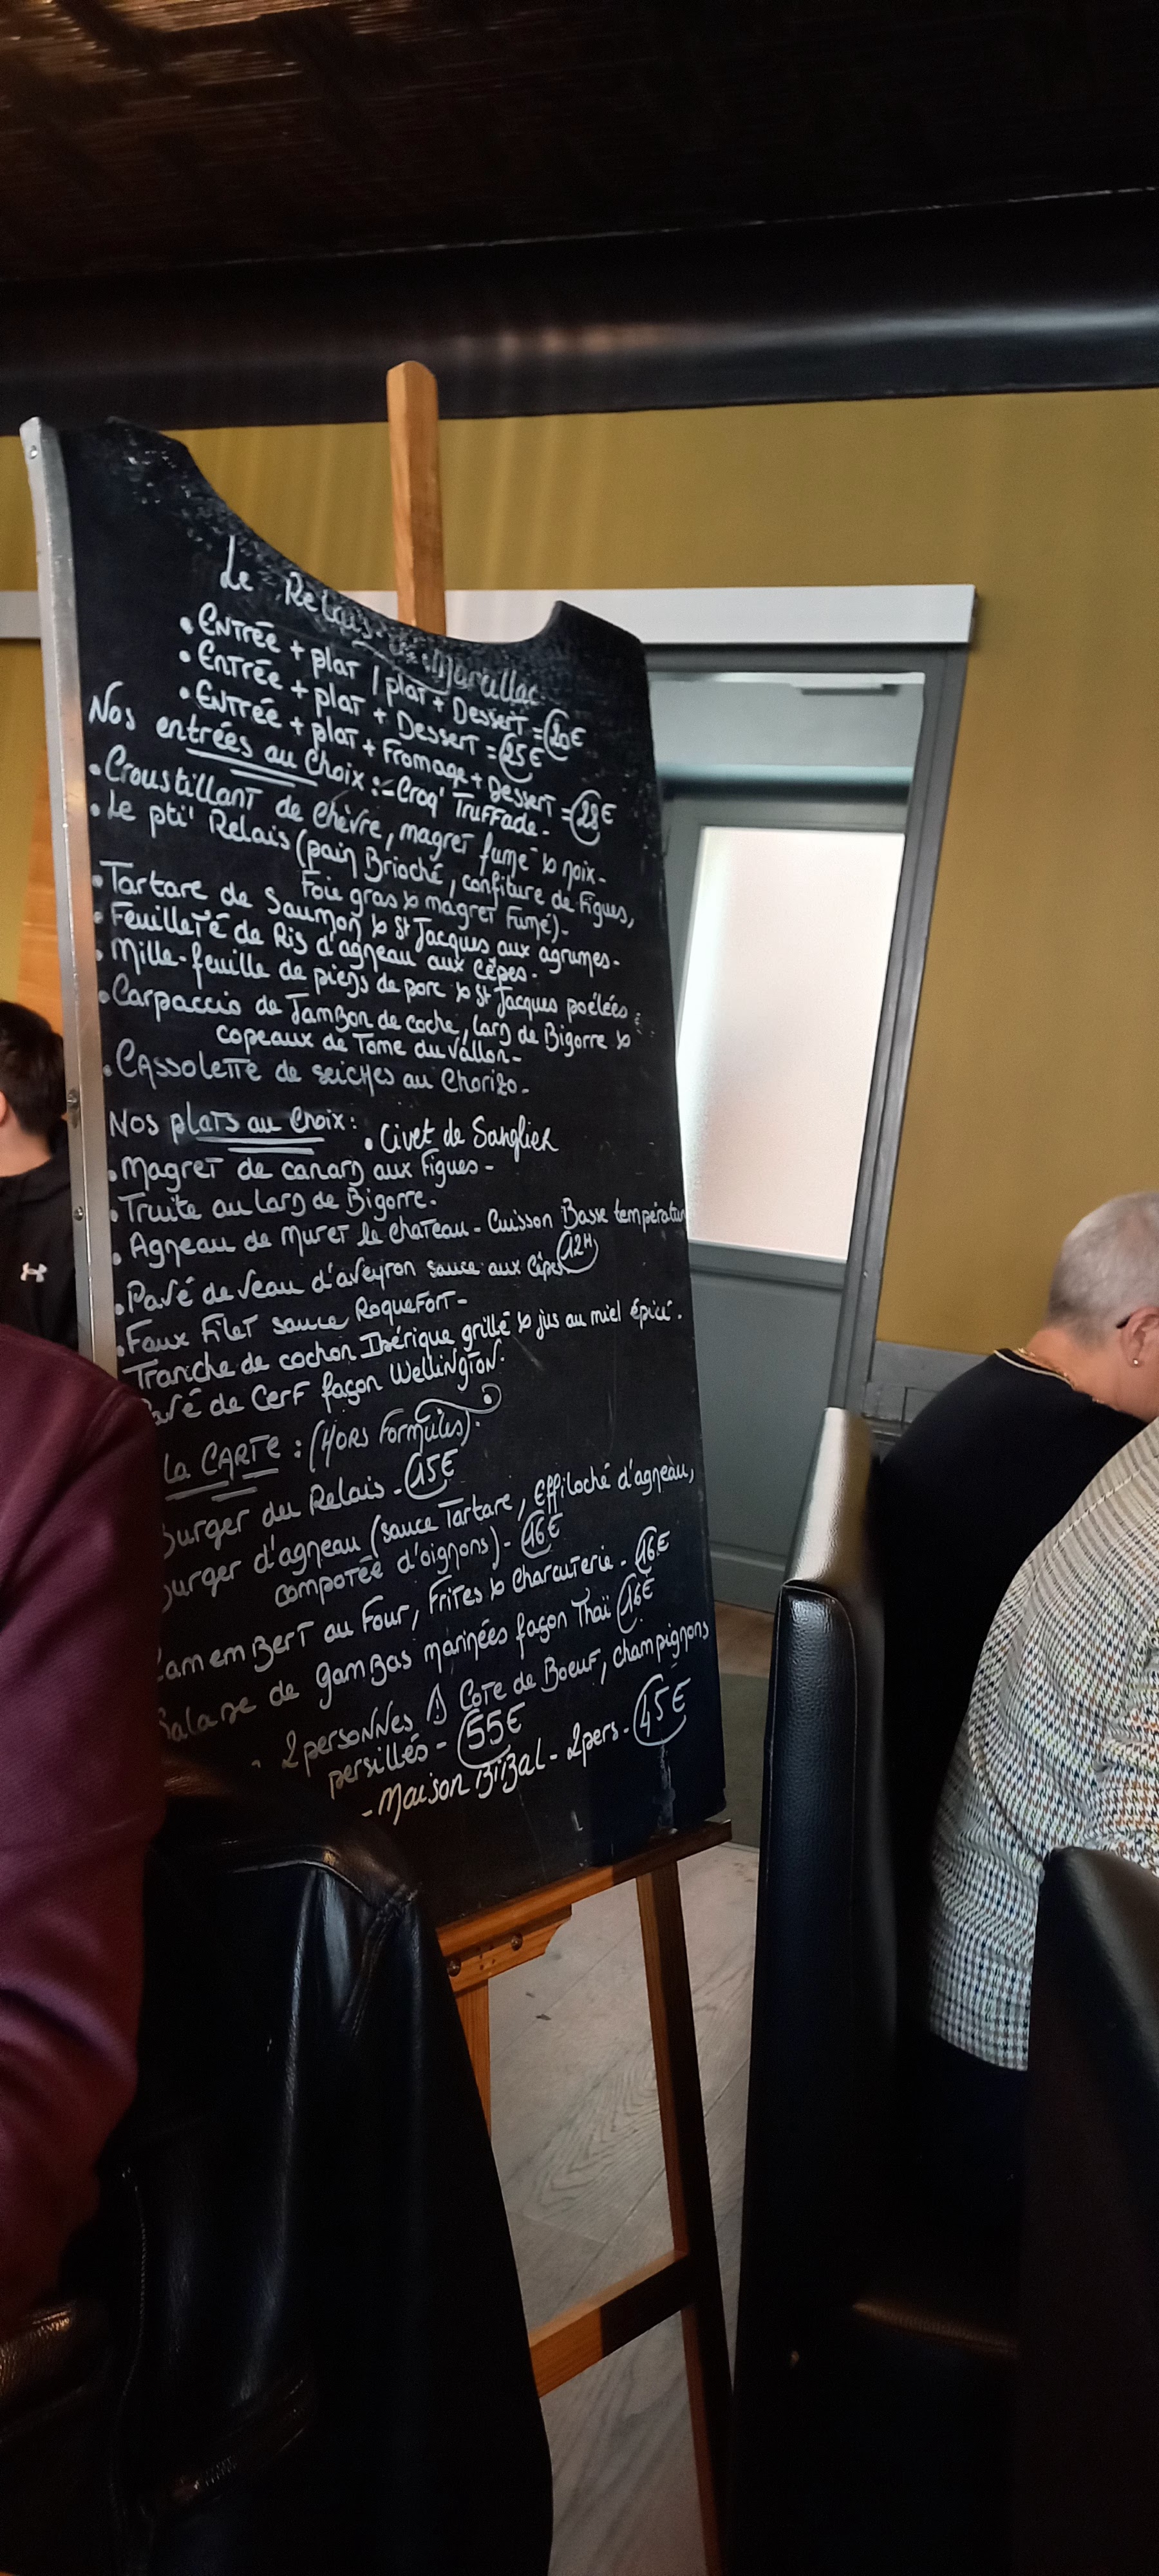 Le Relais de Marcillac
• ENTRÉE + plat / plat + Dessert = 20€
• ENTRÉE + plat + Dessert = 25€
• ENTRÉE + plat + Fromage + Dessert = 28€
Nos entrées au Choix : - Croq' Truffade -
• Croustillant de Chèvre, magret fumé & noix -
• Le pti' Relais (pain Brioché, confiture de Figues,
Foie gras & magret Fumé) -
• Tartare de Saumon & St Jacques aux agrumes -
• Feuilleté de Ris d'agneau aux Cèpes -
• Mille-feuille de pieds de porc & St Jacques poêlées -
• Carpaccio de Jambon de coche, lard de Bigorre &
copeaux de Tome du Vallon -
• CASSOLETTE de seiches au Chorizo -
Nos plats au Choix : • Civet de Sanglier
• Magret de canard aux Figues -
• Truite au lard de Bigorre -
• Agneau de Muret le chateau - Cuisson Basse températur
12H
• Pavé de veau d'aveyron sauce aux Cèpes
• Faux Filet sauce Roquefort -
Tranche de cochon Ibérique grillé & jus au miel épicé.
avé de Cerf façon Wellington.
la CARTE : (HORS Formules).
Burger du Relais - 15€
urger d'agneau (sauce Tartare, effiloché d'agneau,
compotée d'oignons) - 16€
Camembert au Four, Frites & Charcuterie - 16€
Salade de gambas marinées façon Thaï 16€
2 personnes Cote de Boeuf, champignons
persillés - 55€
- Maison Bibal - 2pers - 45€